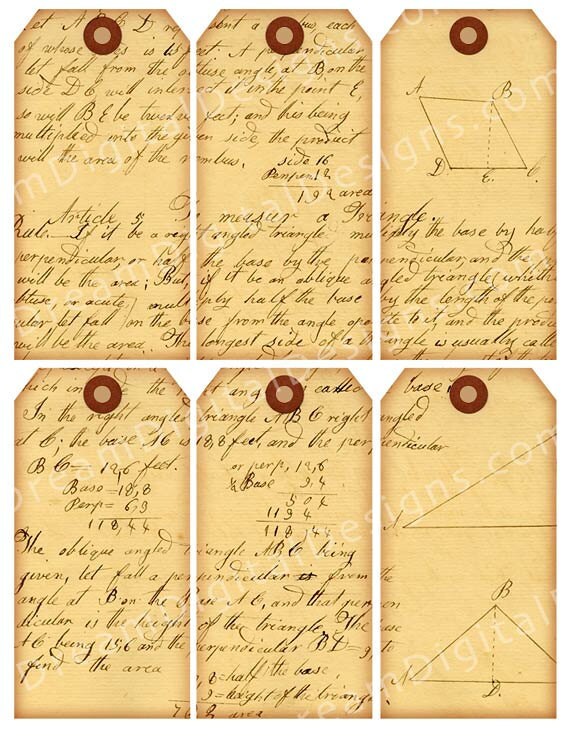 Let A B C D rep sent a rombus, each
of whose sides is 16 feet. A perpendicular
let fall from the obtuse angle, at B, on the
side D C, will intersect it in the point E,
so will B E be twelve feet; and this being
multiplied into the given side, the product
will the area of the rombus.
side 16
Perpen 12
192 area
A
B
D
E.
C.
Article 5 To measure a Triangle.
Rule. If it be a right angled triangle multiply the base by half
perpendicular or half the base by the perpendicular, and the
will be the area; But, if it be an oblique angled triangle, whether
obtuse, or acute, multiply half the base by the length of the pe
ular, let fall on the base from the angle opposite to it, and the produc
will be the area. The longest side of a triangle is usually calle
which in the right angl called base;
In the right angled triangle A B C right angled
at C; the base A C is 18,8 feet, and the perpendicular
B C = 12,6 feet.
Base = 18,8
Perp = 6,3
118,44
or perp, 12,6
½ Base 9,4
504
1134
118,44
A
The oblique angled triangle A,B,C being
given, let fall a perpendicular from the
angle at B on the Base A C, and that perpen
dicular is the height of the triangle. The base
A C being 15,6 and the perpendicular B D = 9, to
find the area
,8 = half the base,
9 = height of the triang
area
B
A
D.
DreamDigitalDesigns.com